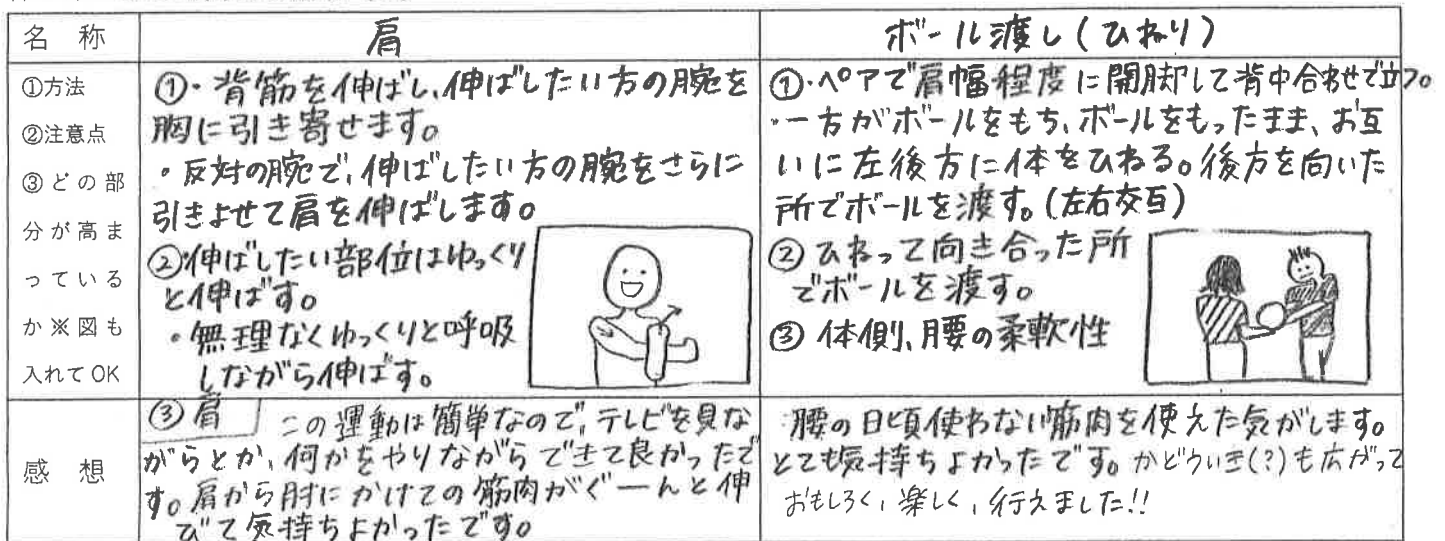 名 称
肩
ボール渡し(ひねり)
①方法
②注意点
③どの部
分が高ま
っている
か※図も
入れてOK
①・背筋を伸ばし、伸ばしたい方の腕を
胸に引き寄せます。
・反対の腕で、伸ばしたい方の腕をさらに
引きよせて肩を伸ばします。
②・伸ばしたい部位はゆっくり
と伸ばす。
・無理なくゆっくりと呼吸
しながら伸ばす。
③肩
①・ペアで肩幅程度に開脚して背中合わせで立つ。
・一方がボールをもち、ボールをもったまま、お互
いに左後方に体をひねる。後方を向いた
所でボールを渡す。(左右交互)
②ひねって向き合った所
でボールを渡す。
③体側、腰の柔軟性
感 想
この運動は簡単なので、テレビを見な
がらとか、何かをやりながらできて良かったで
す。肩から肘にかけての筋肉がぐーんと伸
びて気持ちよかったです。
腰の日頃使わない筋肉を使えた気がします。
とても気持ちよかったです。かどういき(?)も広がって
おもしろく、楽しく、行えました!!